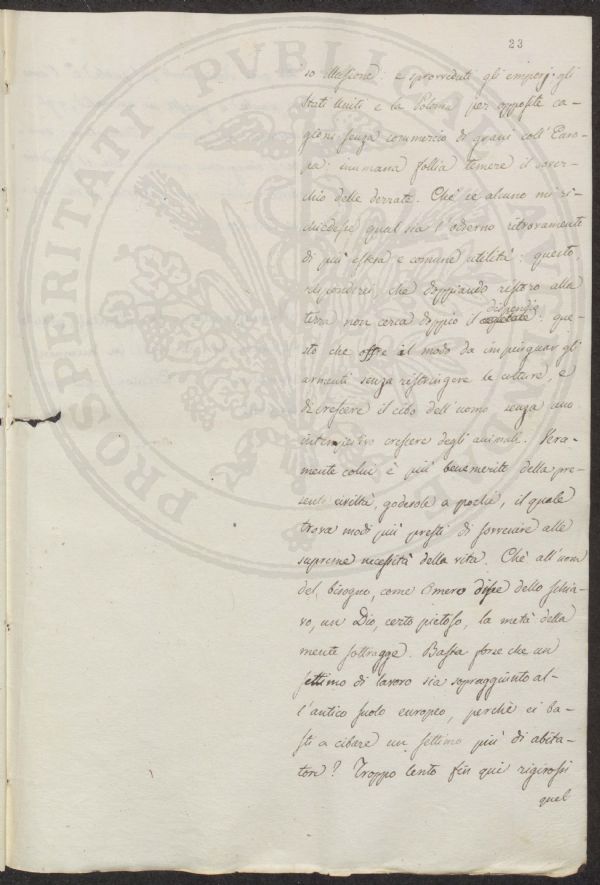 23
so illusione: e sprovveduti gli imperj gli
Stati Uniti e la Polonia per opposite ca-
gioni senza commercio di grani coll'Euro-
pa: inumana follia temere il sover-
chio delle derrate. Chè se alcuno mi ri-
chiedesse qual sia l'odierno ritrovamento
di più estesa e comune utilità: questo,
risponderei, che doppiando ristoro alla
terra non cerca doppio il dispendio: que-
sto che offre il modo da impinguar gli
armenti senza ristringere le culture, e
di crescere il cibo dell'uomo senza uno
intempestivo crescere degli animali. Vera-
mente colui è più benemerito della pre-
sente civiltà, godevole a pochi, il quale
trova modi più presti di sovvenire alle
supreme necessità della vita. Chè all'uom
del bisogno, come Omero disse dello schia-
vo, un Dio, certo pietoso, la metà della
mente sottragge. Basta forse che un
settimo di lavoro sia sopraggiunto al-
l'antico suolo europeo, perchè ei ba-
sti a cibare un settimo più di abita-
tori? Troppo lento fin qui rigirossi
quel
PROSPERITATI PVBLICAE AVGENDAE